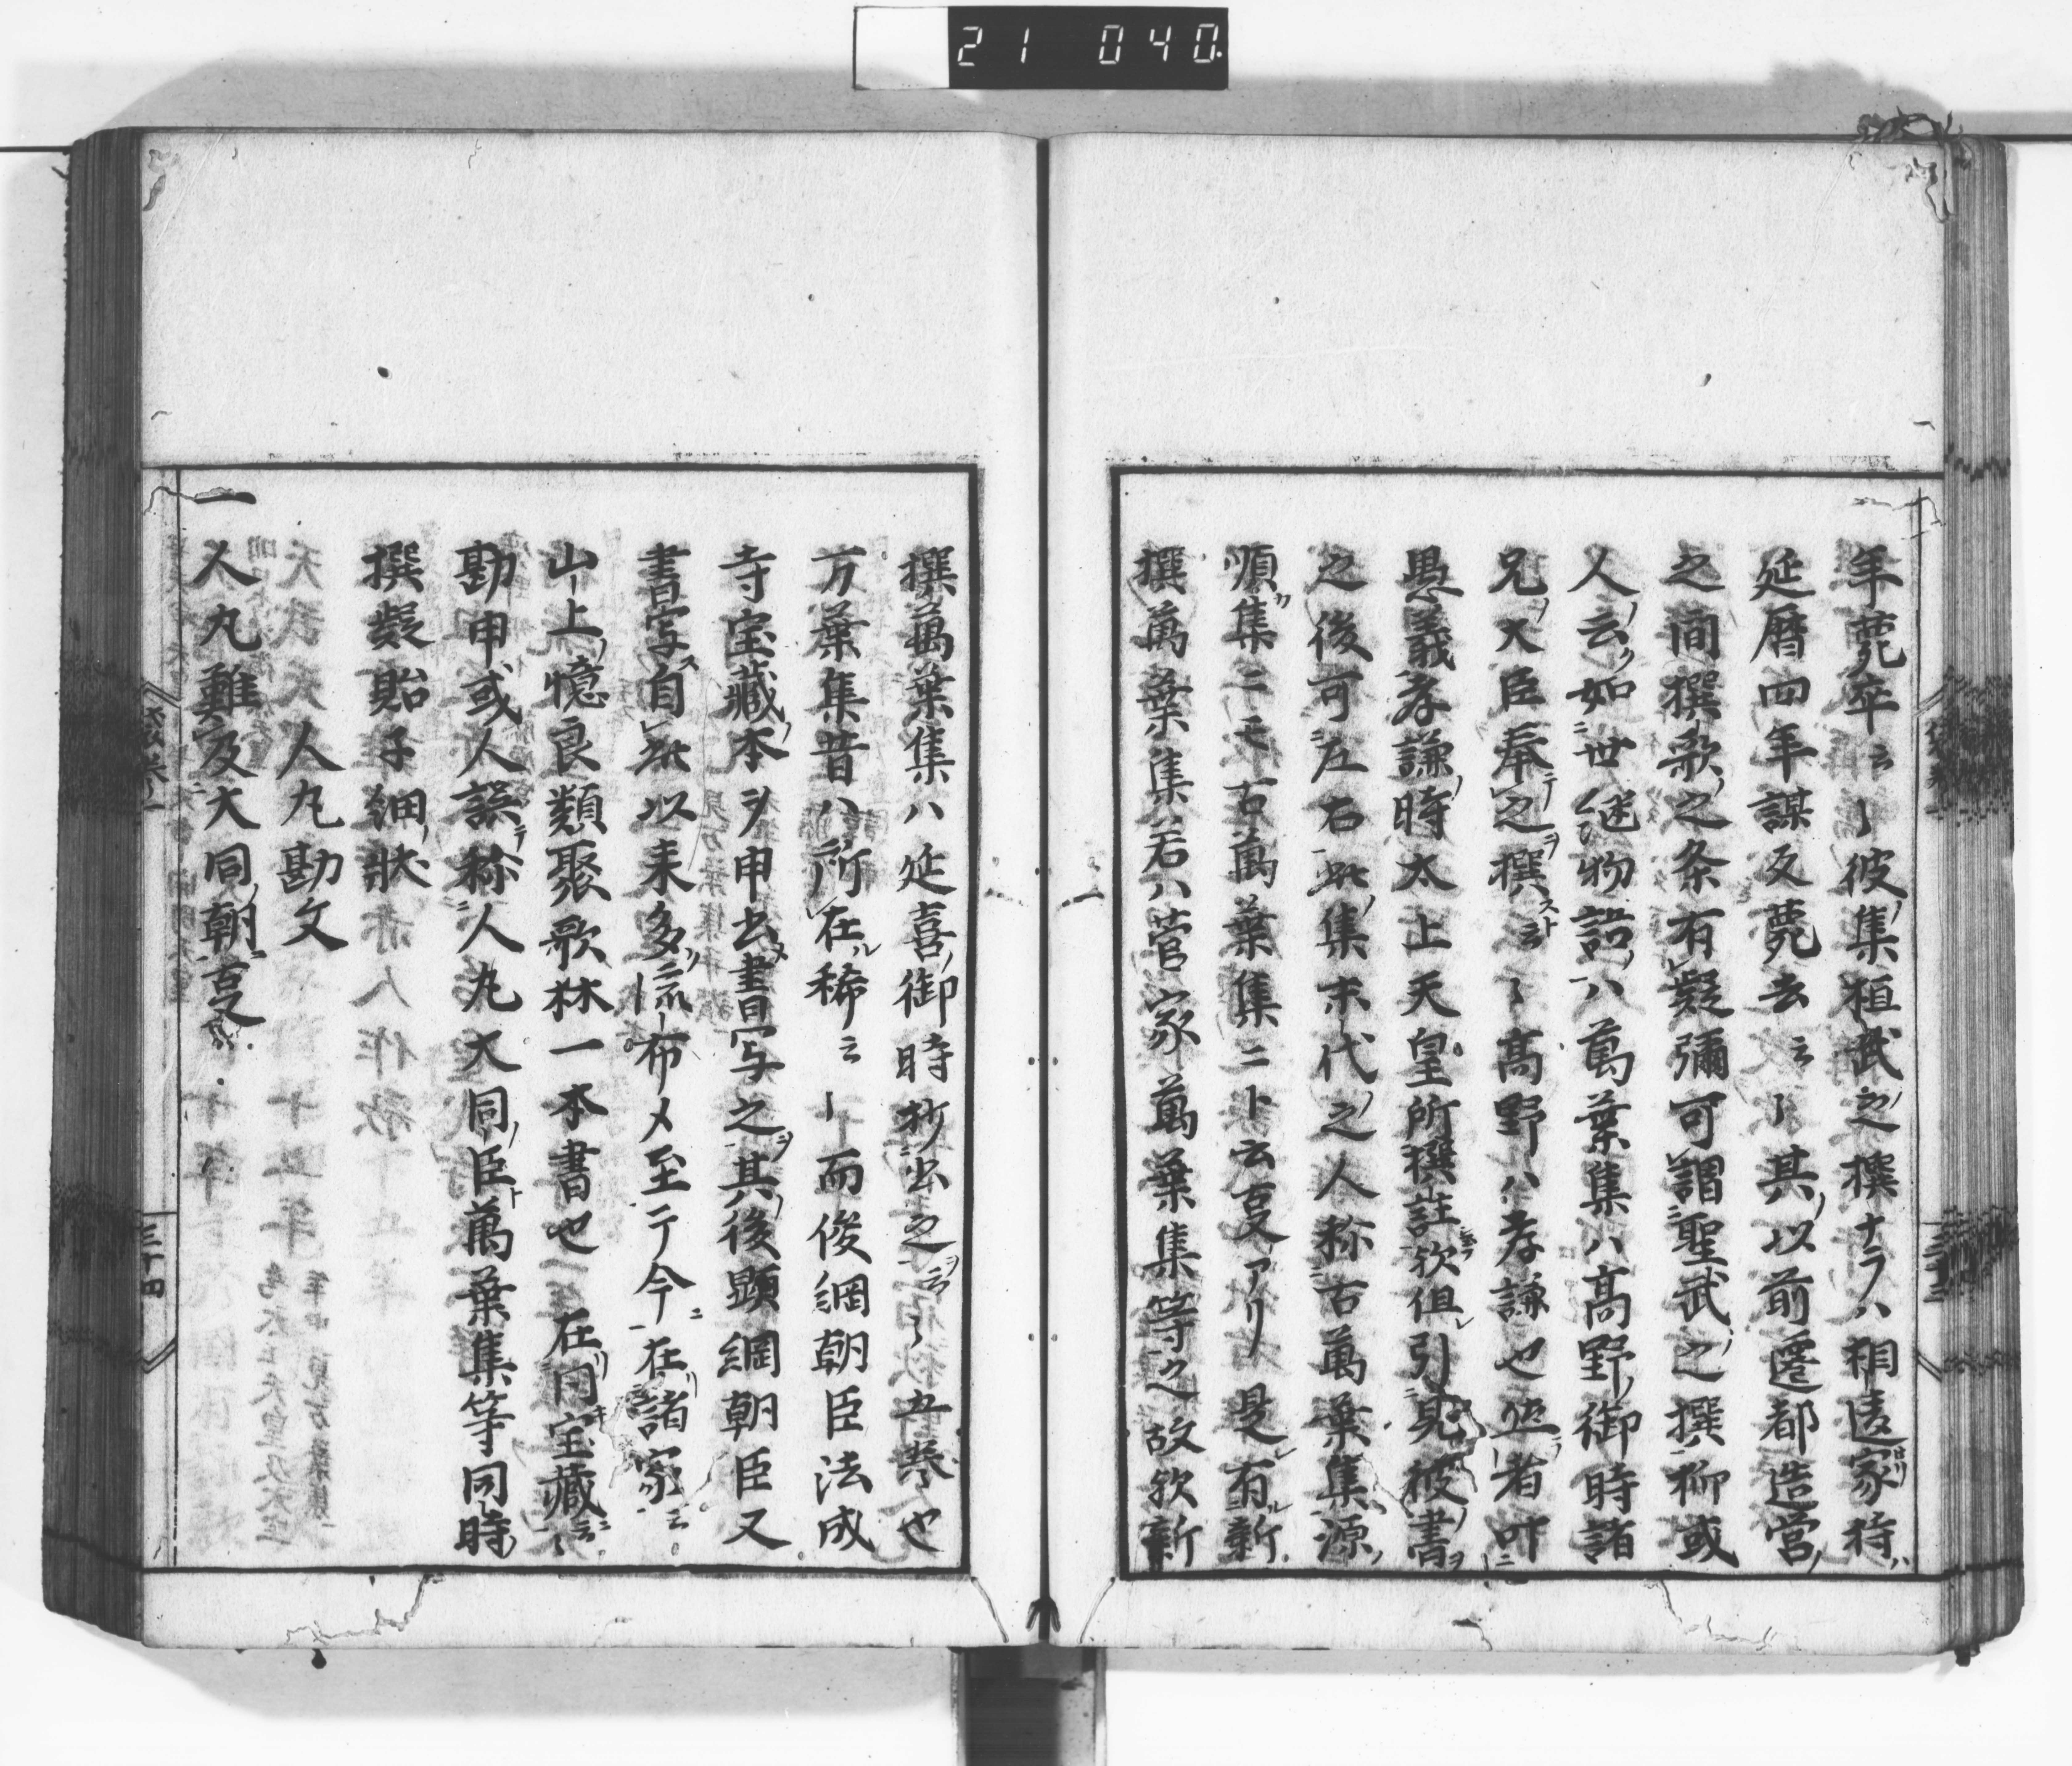 21 040
年薨卒云〻彼集桓武之撰ナラハ相違家持ハ
延暦四年謀反薨去云〻其以前遷都造営ノ
之間撰歌之条有疑彌可謂聖武之撰抑或
人云如世継物語ハ萬葉集ハ高野御時諸
兄大臣奉之撰云〻高野ハ孝謙也然者叶
愚義孝謙時太上天皇所撰註欤但引見彼書
之後可左右此集末代之人称古萬葉集源ノ
順集ニモ古萬葉集ニト云叓アリ是有新
撰萬葉集若ハ菅家萬葉集等之故欤新
撰萬葉集ハ延喜御時抄出之云〻五巻也
万葉集昔ハ所在稀云〻而俊綱朝臣法成
寺宝蔵本ヲ申出書写之其後顕綱朝臣又
書写自此以来多流布メ至テ今在諸家云〻
山上憶良類聚歌林一本書也在同宝蔵云〻
勘申或人誤称人丸大同臣萬葉集等同時
撰疑貽子細状
人丸勘文
一人丸難及大同朝叓
三十四